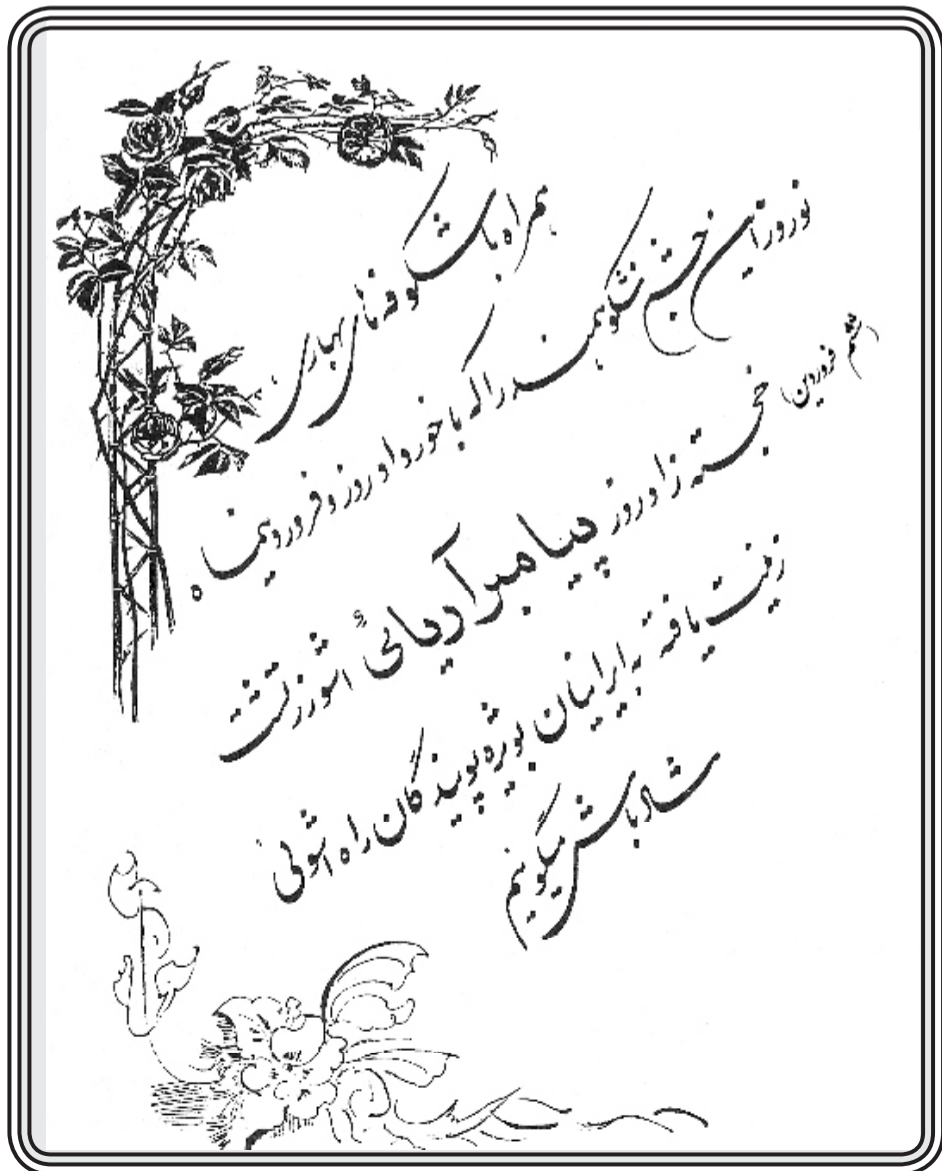 همراه با شکوفه‌های بهاری
نوروز این جشن شکوهمند را که با خورداد روز و فروردینماه
(ششم فروردین)
خجسته زادروز پیامبر آریائی اشوزرتشت
زینت یافته به ایرانیان بویژه پویندگان راه اشوئی
شادباش میگوئیم